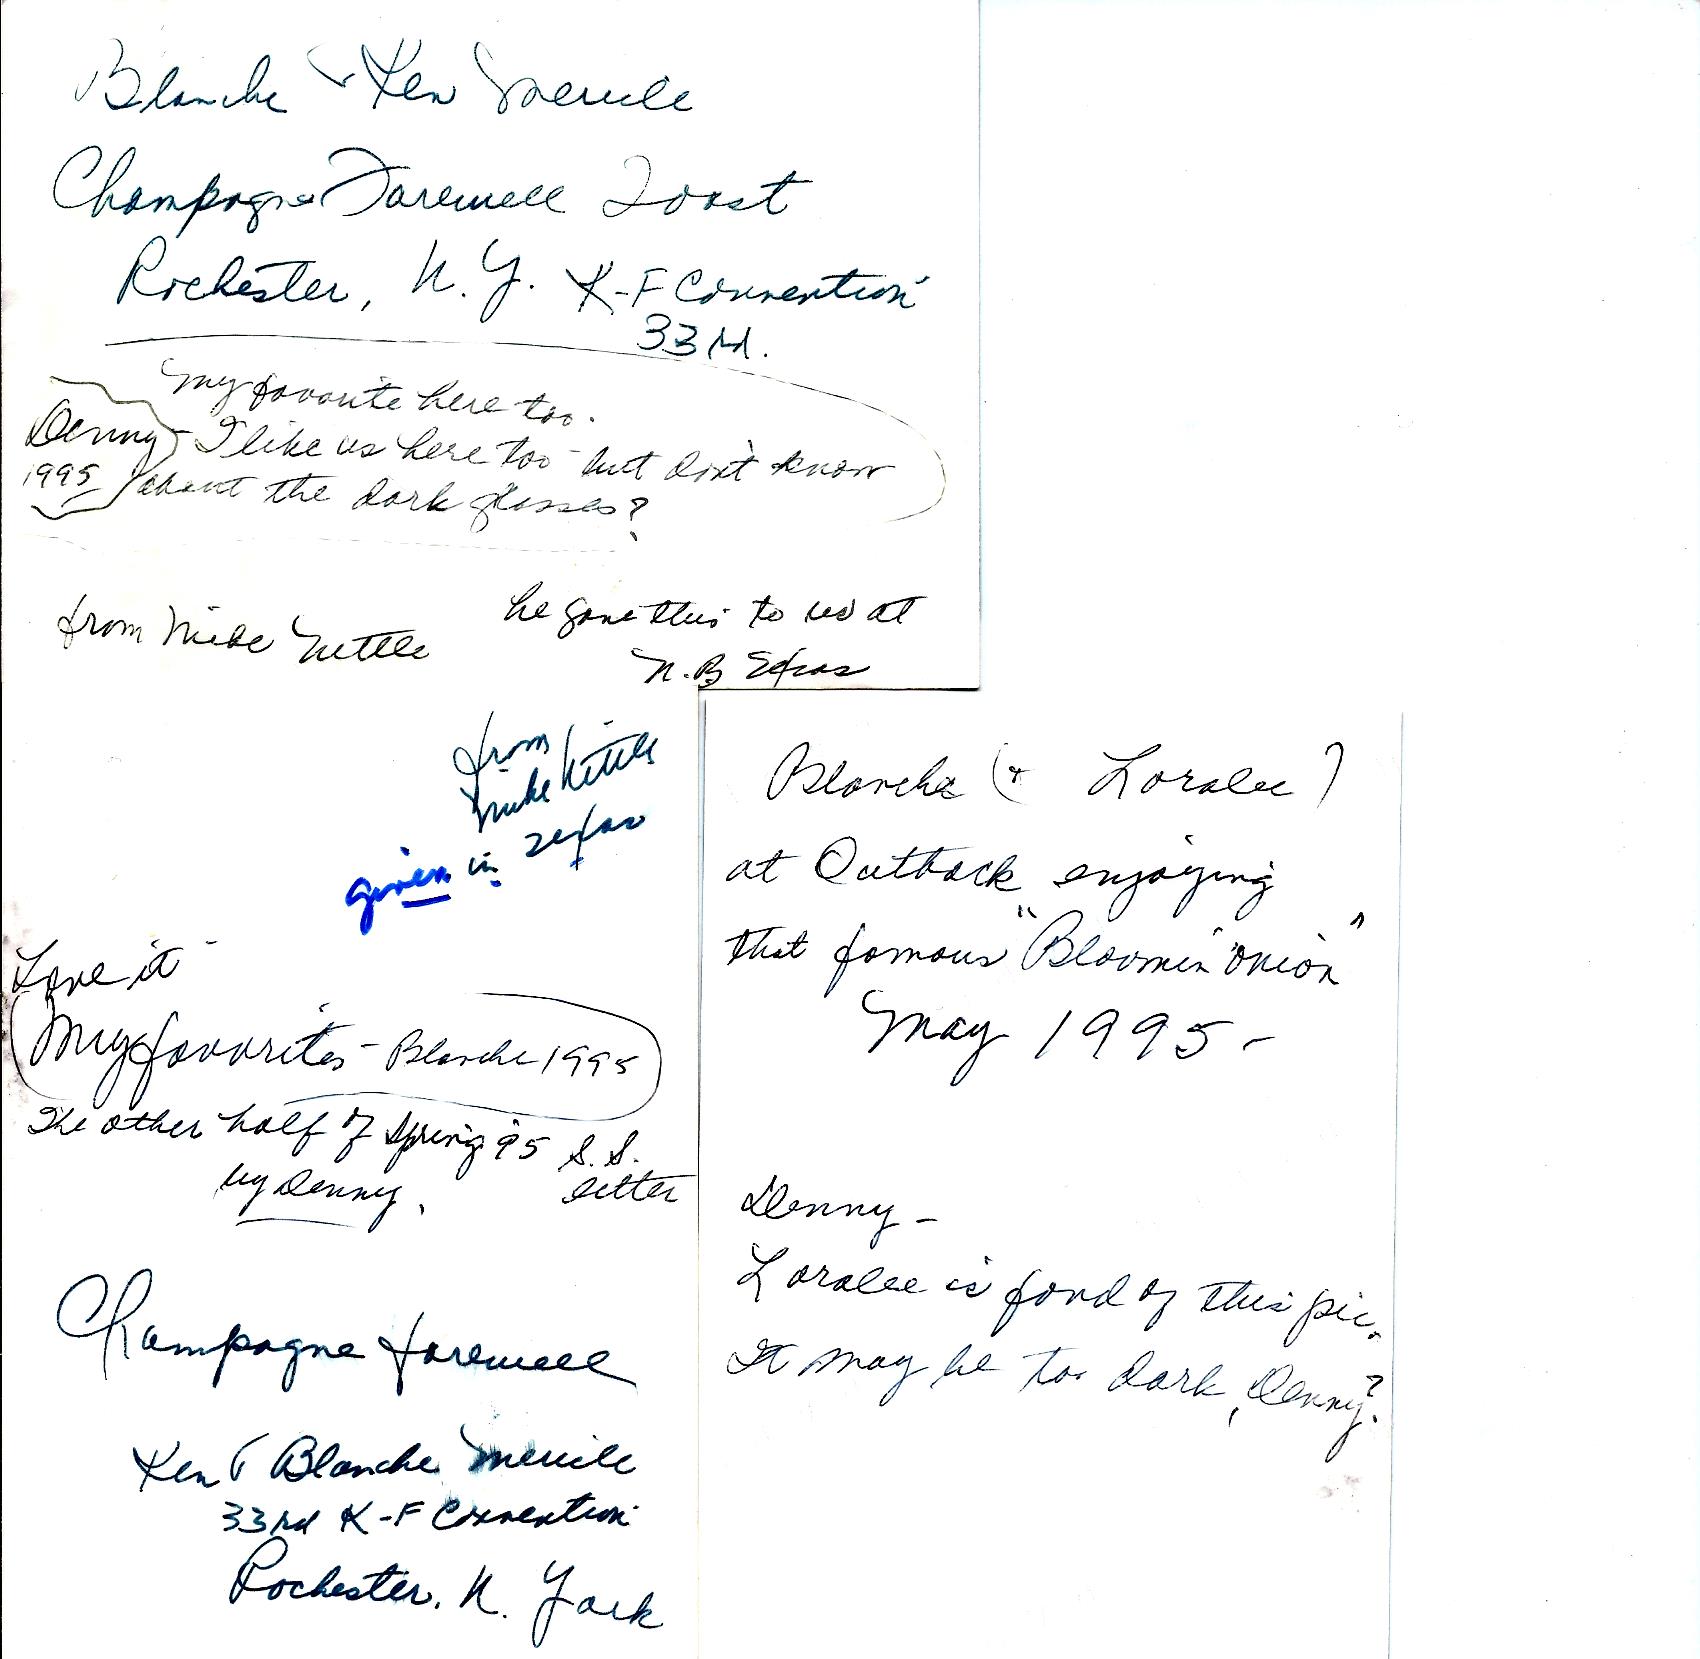 Blanche & Ken Merrill
Champagne Farewell Toast
Rochester, N.Y. K-F Convention
33rd.
My favorite here too.
Denny - I like us here too - but don't know
1995 about the dark glasses?
from Mike Kittle
he gave this to us at
N.B Texas
from
Mike Kittle
given in Texas
Love it -
My favorites - Blanche 1995
The other half of Spring 95 S.S.
by Denny. letter
Champagne farewell
Ken & Blanche Merrill
33rd K-F Convention
Rochester, N. York
Blanche (& Loralee)
at Outback enjoying
that famous "Bloomin' onion"
May 1995 -
Denny -
Loralee is fond of this pic.
It may be too dark, Denny?